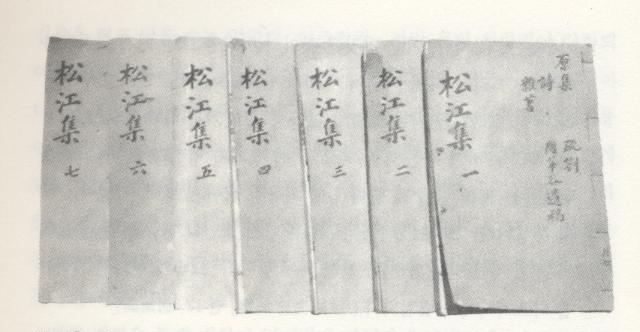 原集
詩 遺稿
雜著
松江集 一
松江集 二
松江集 三
松江集 四
松江集 五
松江集 六
松江集 七